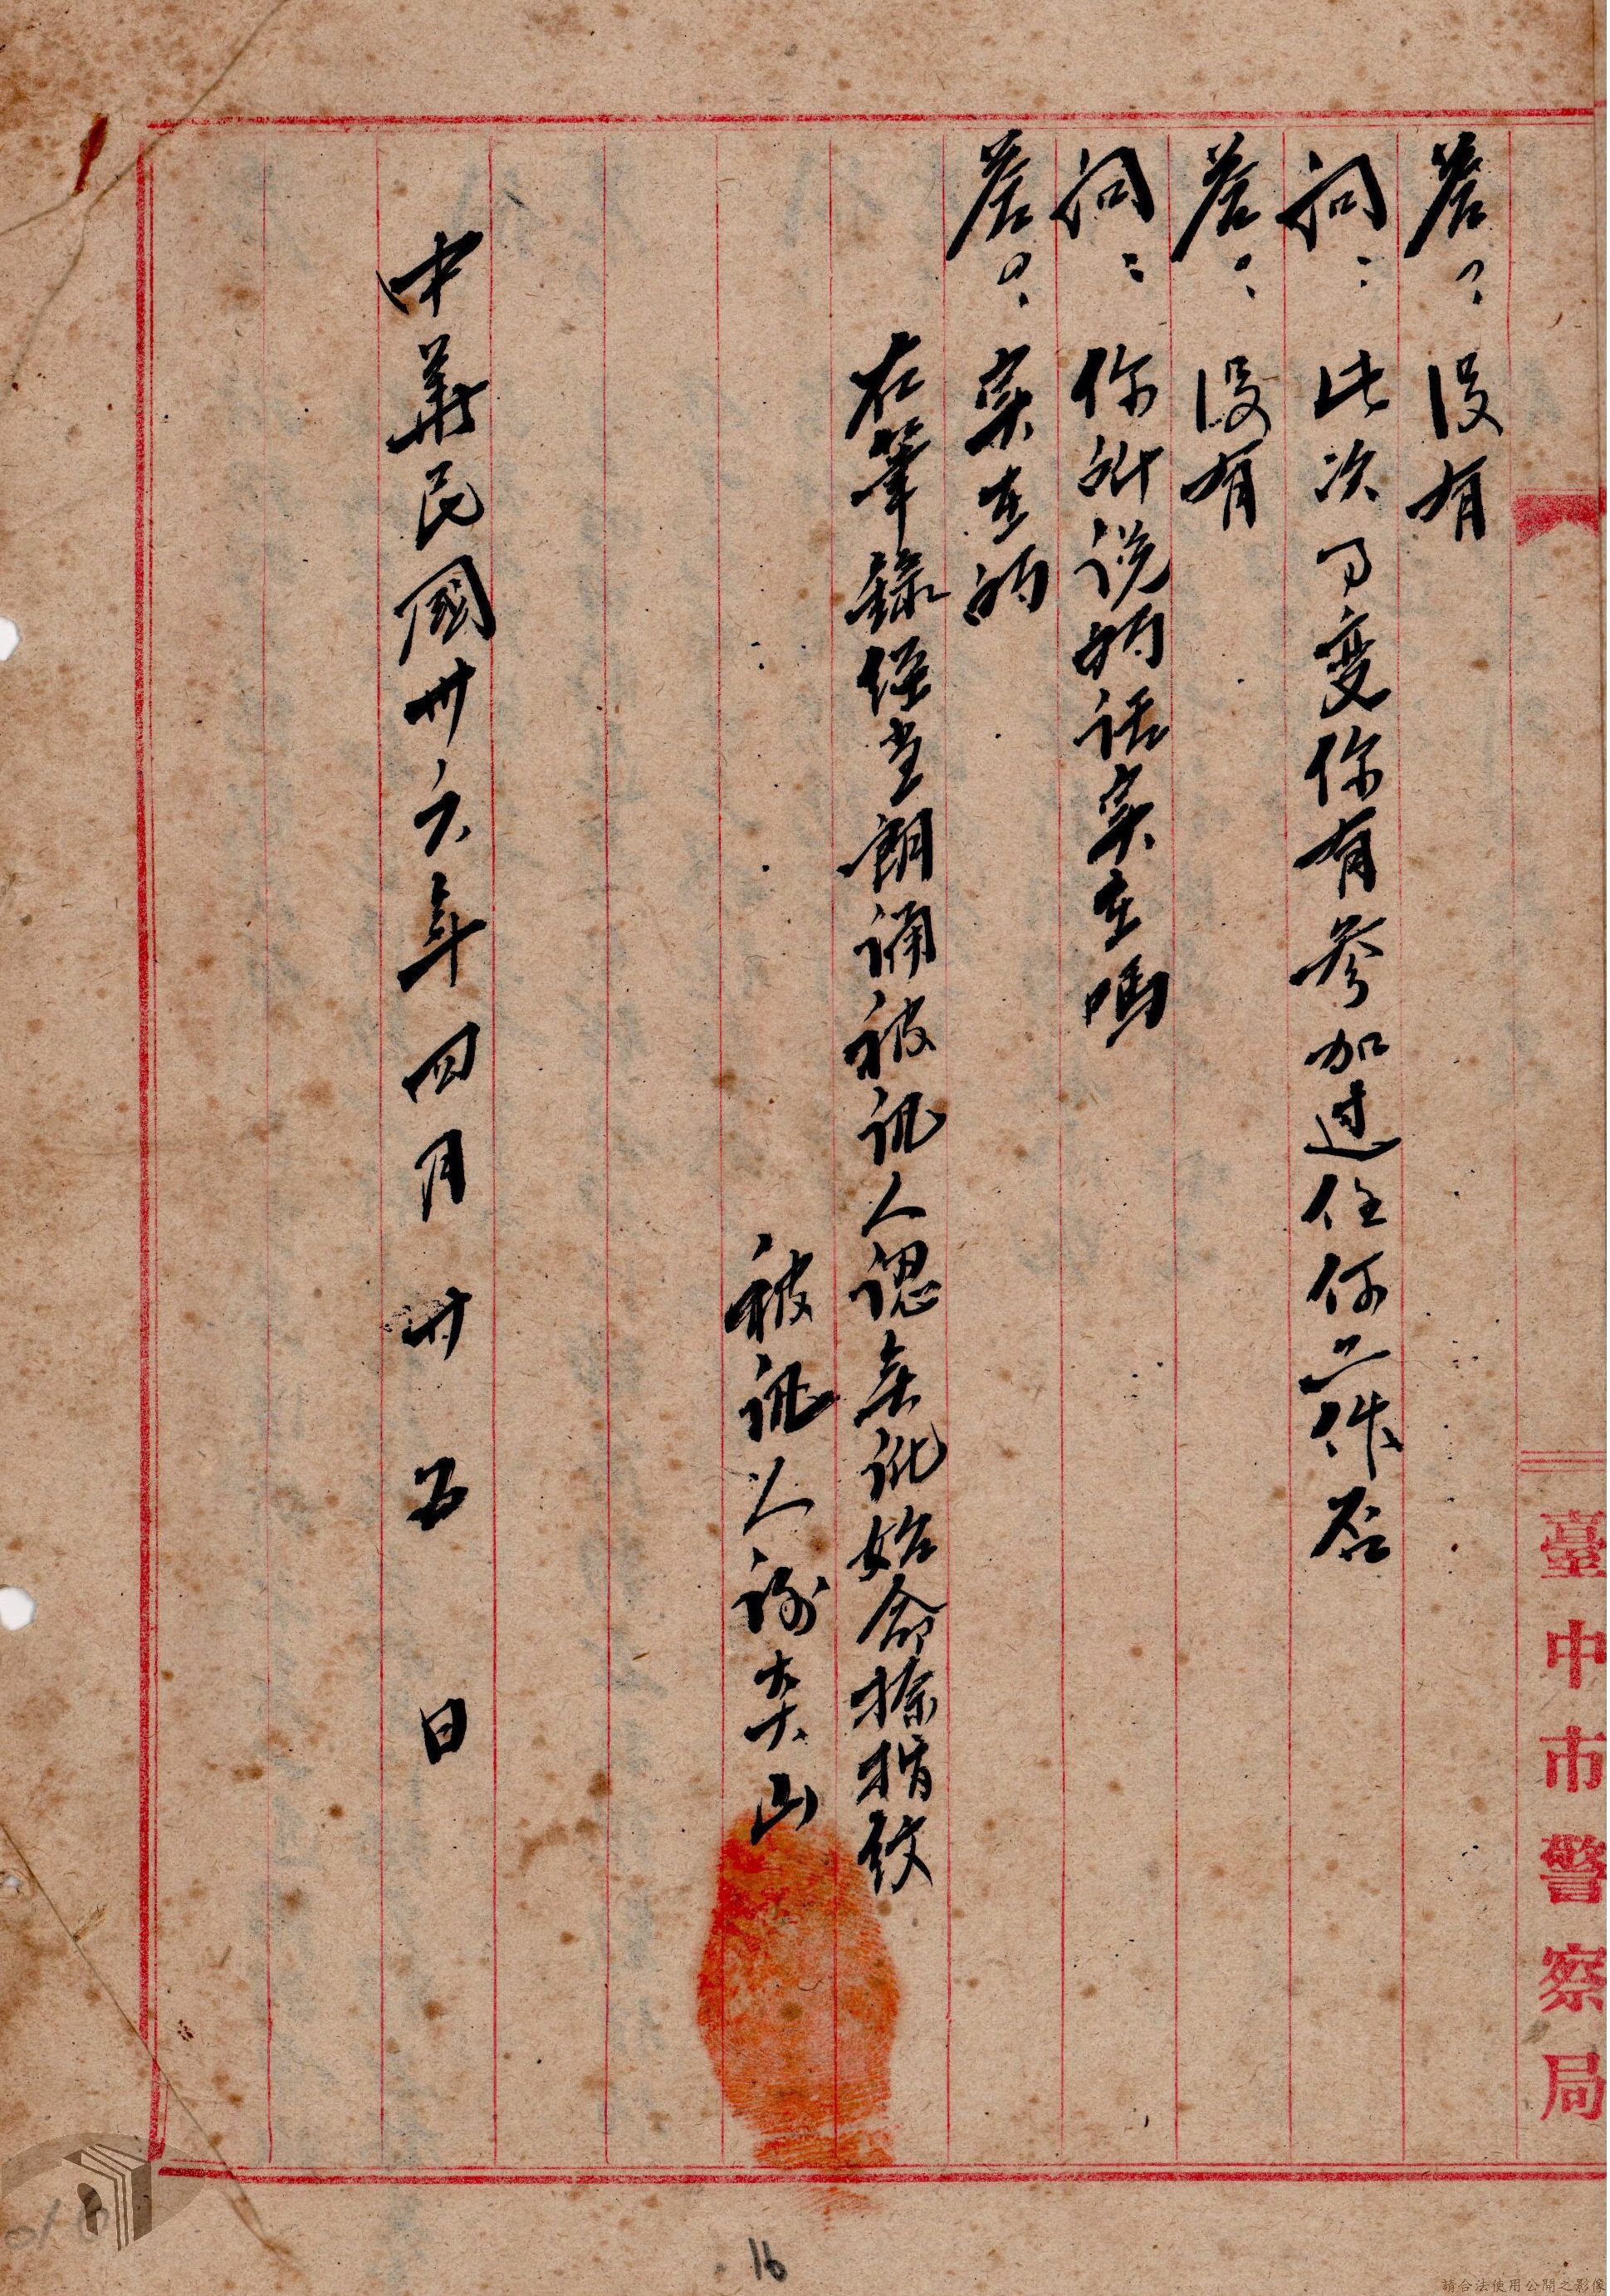 答：沒有
問：此次事变你有參加过任何工作否
答：沒有
問：你所説的话实在嗎
答：实在的
右筆錄經当朗诵被讯人認無訛始命捺指紋
被讯人謝
山
中華民國卅六年四月廿五日
臺中市警察局
16
請合法使用公開之影像